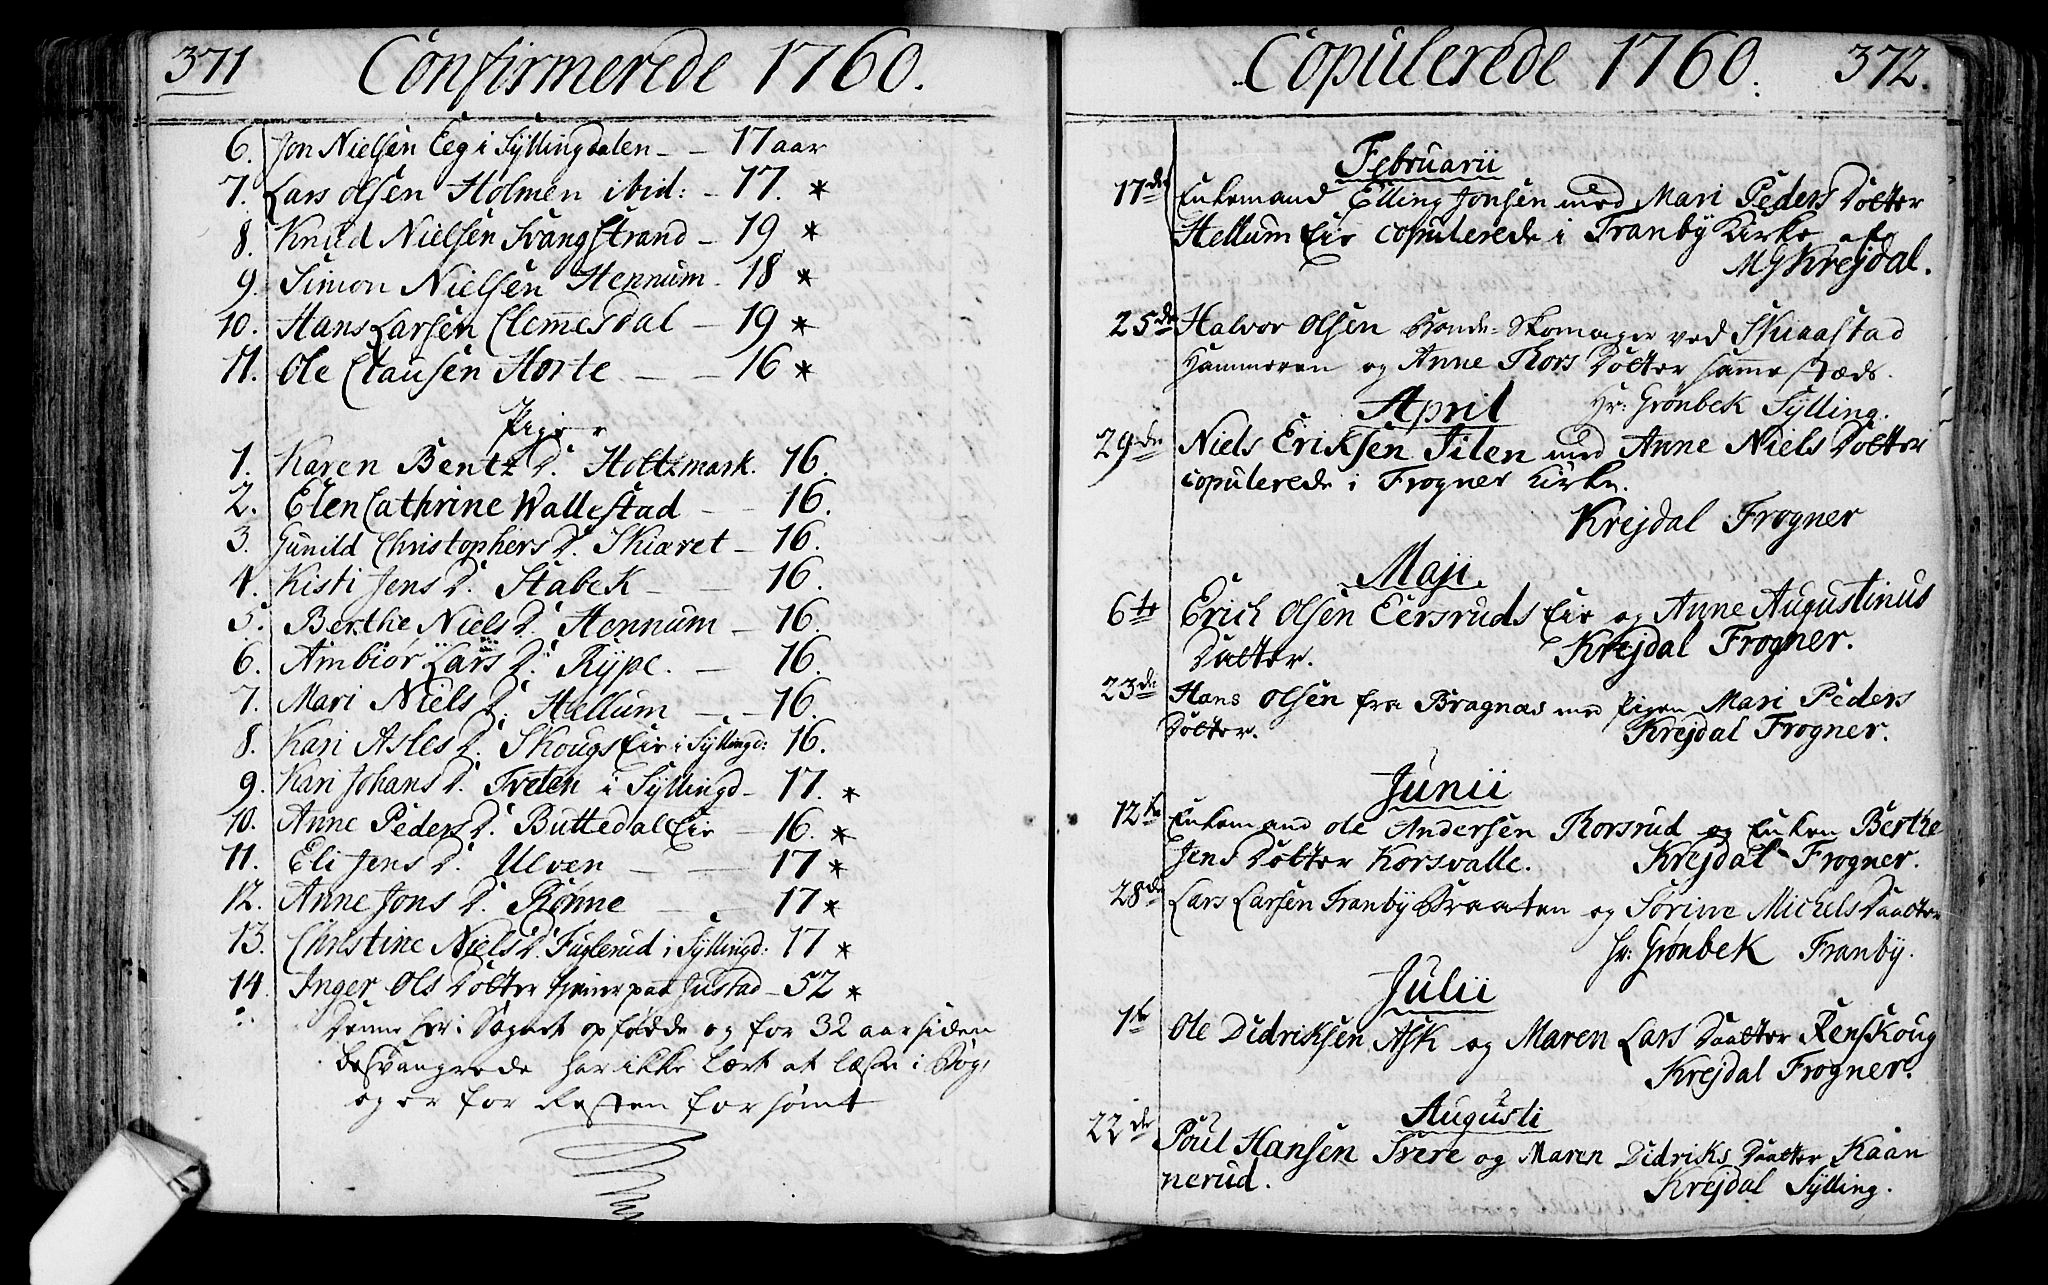 371 Confirmerede 1760.
6. Jon Nielsen Eeg i Syllingdalen - - 17 aar
7. Lars Olsen Holmen ibid: - 17. *
8. Knud Nielsen Svangstrand - 19 *
9. Simon Nielsen Hennum - 18 *
10. Hans Larsen Clemmesdal - 19 *
11. Ole Clausen Horte - - 16 *
Piger
1. Karen Bentz D. Holtzmark. 16.
2. Elen Cathrine Wallestad - - 16.
3. Gunild Christophers D. Skiæret - 16.
4. Kisti Jens D. Stabek - - 16.
5. Berthe Niels D. Hennum - 16.
6. Ambiør Lars D. Rype. - 16.
7. Mari Niels D. Hellum - - 16.
8. Kari Asles D. Skougs Eie i Syllingd: 16.
9. Kari Johans D. Tveten i Syllingd - 17. *
10. Anne Peders D. Buttedal Eie - 16. *
11. Eli Jens D. Ulven - - 17 *
12. Anne Jons D. Rønne - - 17 *
13. Christine Niels D. Fuglerud i Syllingd: 17 *
14. Inger Ols Dotter tiener paa Justad - 52 *
Denne her i Sognet opfødde og for 32 aar siden
besvangrede har ikke lært at læse i Bog,
og er for Resten forsømt
Copulerede 1760. 372.
Februarii
17de Enkemand Elling Jonsen med Mari Peders Dotter
Hellum Eie copulerede i Tranby Kirke af
MG Krejdal.
25de Halvor Olsen Bonde-Skomager ved Skiaastad
Hammeren og Anne Thors Dotter samme stæds.
April Hr: Grønbek Sylling.
29de Niels Eriksen Filen med Anne Niels Dotter
copulerede i Frogner Kirke.
Krejdal Frogner
Maji.
6te Erich Olsen Eersruds Eie og Anne Augustinus
Datter. Krejdal Frogner.
23de Hans Olsen fra Bragnæs med Pigen Mari Peders
Dotter. Krejdal Frogner.
Junii
12te Enkemand Ole Andersen Korsrud og Enken Berthe
Jens Dotter Korsvalle. Krejdal Frogner.
28de Lars Larsen Tranby Braaten og Sørine Michels Daatter
Hr: Grønbek Tranby.
Julii
1te Ole Didriksen Ask og Maren Lars Daatter Renskoug
Krejdal Frogner.
Augusti
22de Poul Hansen Tvere og Maren Didriks Daatter Kaan
nerud. Krejdal Sylling.